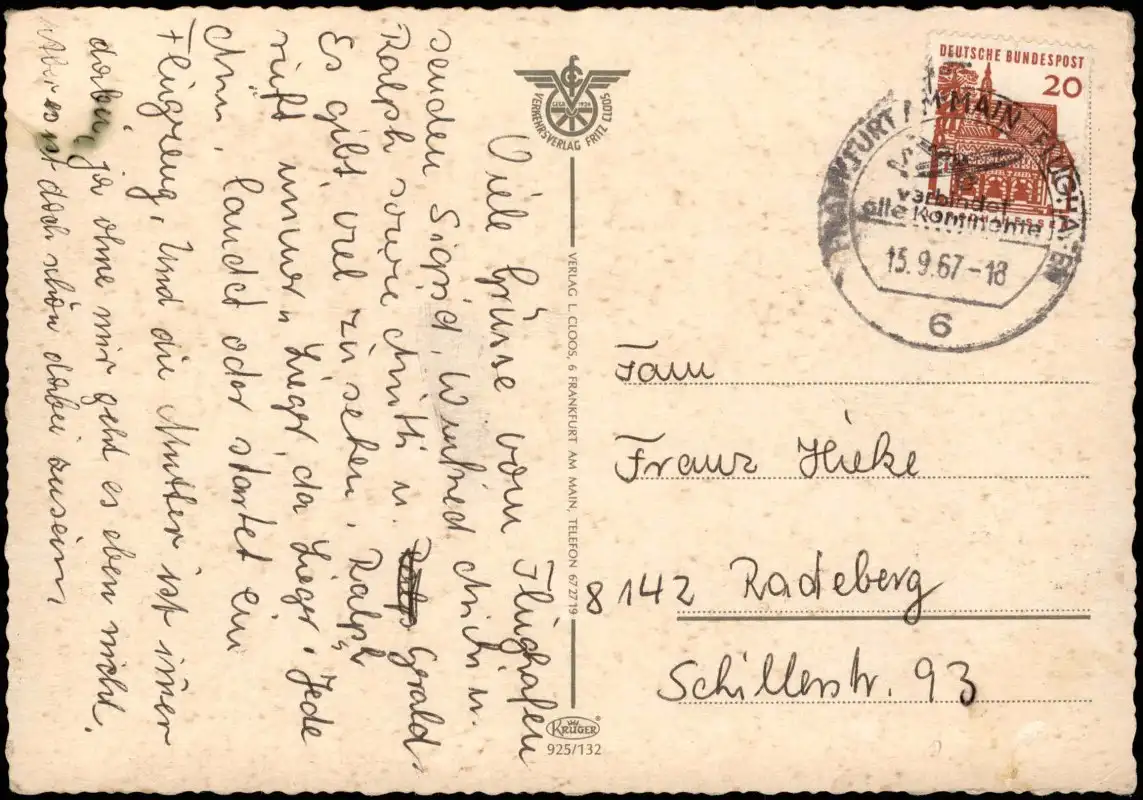 Viele Grüsse vom Flughafen
senden Sigrid, Winfried Ulrich u.
Ralph sowie Mutti u. Gerald.
Es gibt viel zu sehen. Ralph
ruft immer Lieger, da Lieger. Jede
Min. landet oder startet ein
Flugzeug. Und die Mutter ist imer
dabei, ja ohne mir geht es eben nicht.
Aber es ist doch schön dabei zusein.
VERKEHRSVERLAG FRITZ CLOOS
VERLAG L. CLOOS, 6 FRANKFURT AM MAIN, TELEFON 672719
KRÜGER
925/132
DEUTSCHE BUNDESPOST
20
FRANKFURT AM MAIN FLUGHAFEN
verbindet
alle Kontinente
15.9.67-18
6
Fam
Franz Hieke
8142 Radeberg
Schillerstr. 93